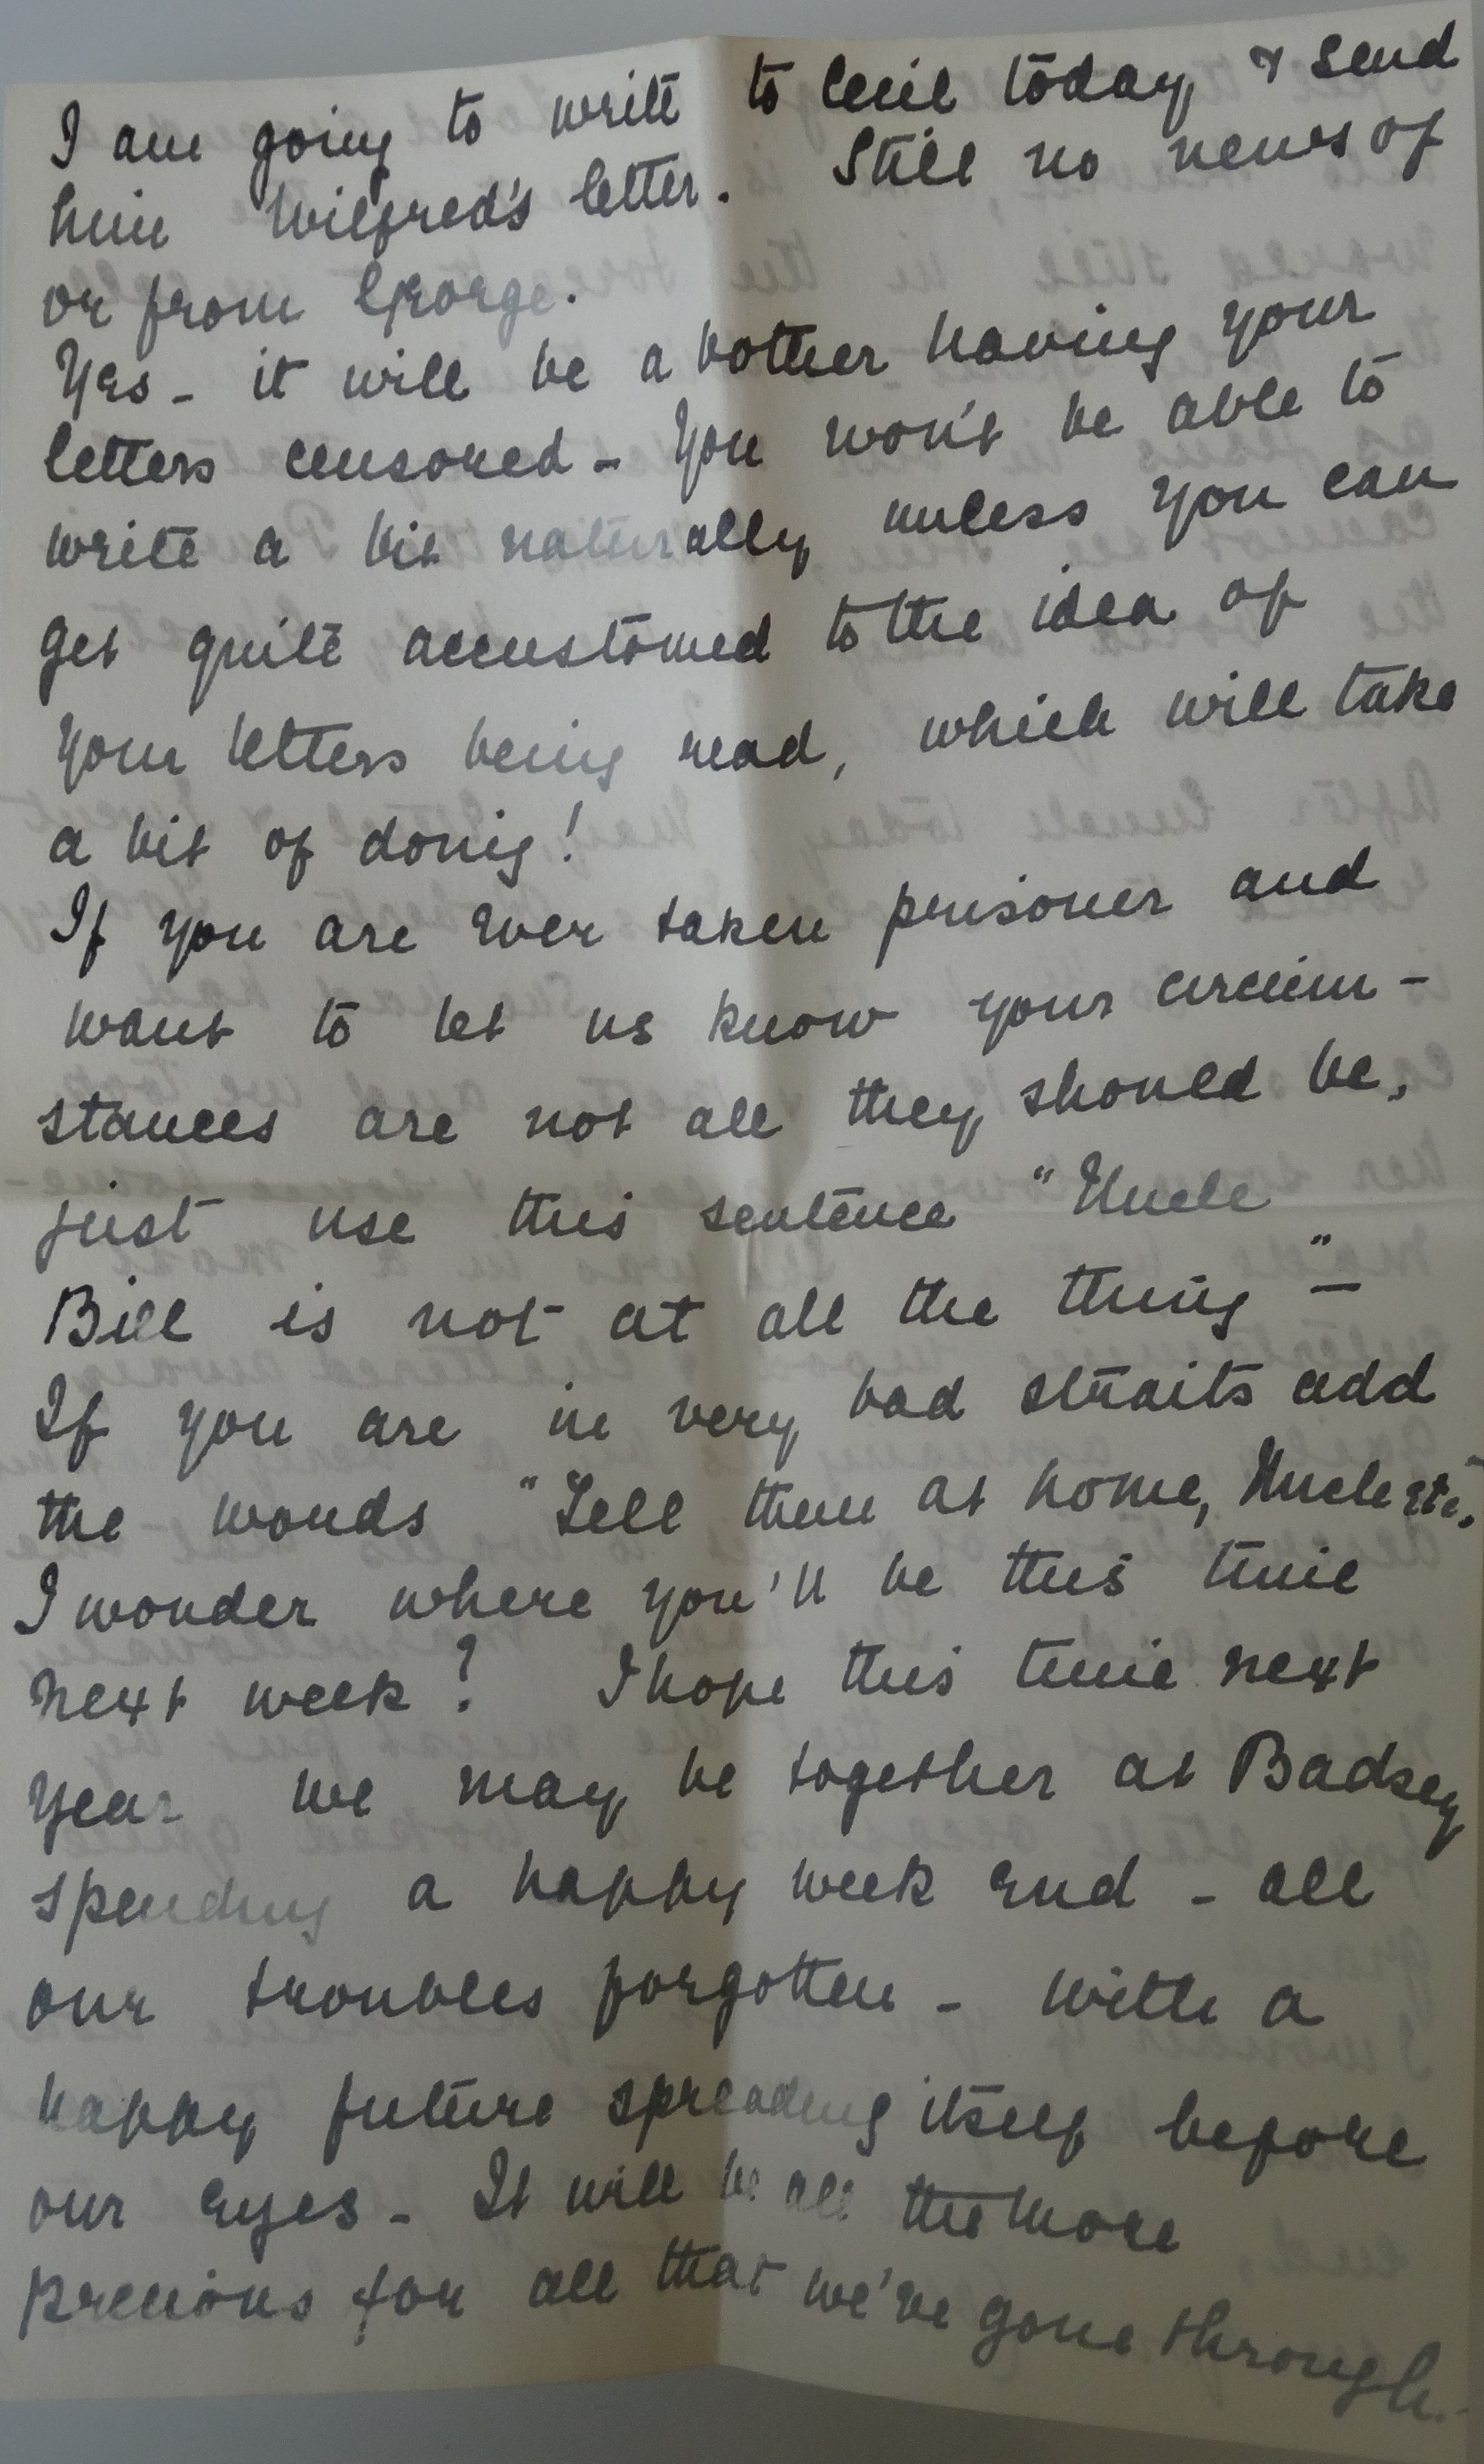 I am going to write to Cecil today & send
him Wilfred's letter. Still no news of
or from George.
Yes - it will be a bother having your
letters censored - You won't be able to
write a bit naturally unless you can
get quite accustomed to the idea of
your letters being read, which will take
a bit of doing!
If you are ever taken prisoner and
want to let us know your circum-
stances are not all they should be,
just use this sentence "Uncle
Bill is not at all the thing" -
If you are in very bad straits add
the words "Tell them at home, Uncle etc."
I wonder where you'll be this time
next week? I hope this time next
year we may be together at Badsey
spending a happy week end - all
our troubles forgotten - with a
happy future spreading itself before
our eyes - It will be all the more
precious for all that we've gone through.